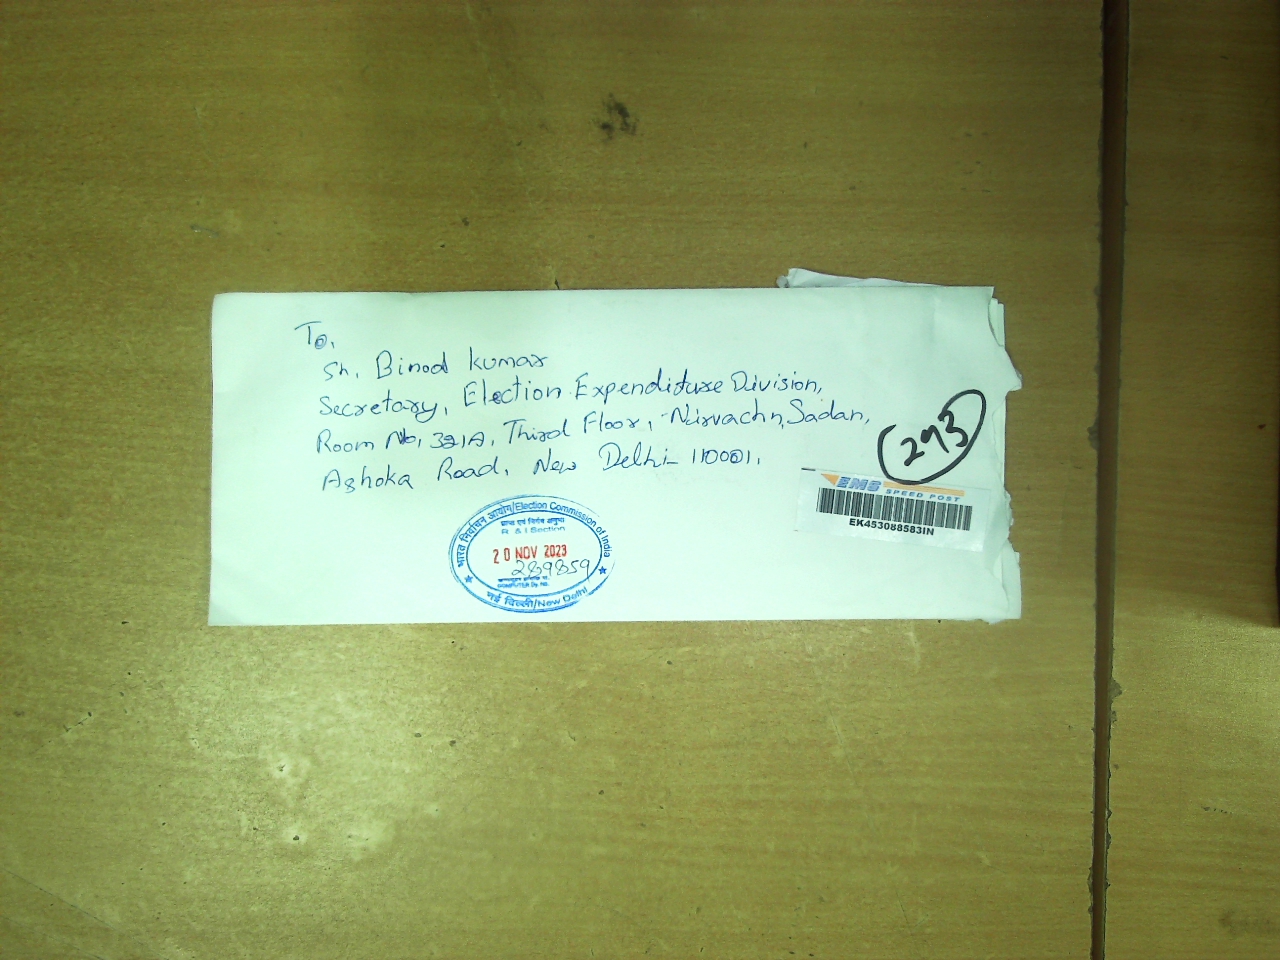 To,
Sh. Binod Kumar
Secretary, Election Expenditure Division,
Room No, 321A, Third Floor, Nirvachn, Sadan,
Ashoka Road, New Delhi 110001.
293
EMS SPEED POST
EK453088583IN
भारत निर्वाचन आयोग/Election Commission of India
प्राप्त एवं निर्गम अनुभाग
R & I Section
20 NOV 2023
289859
नई दिल्ली/New Delhi